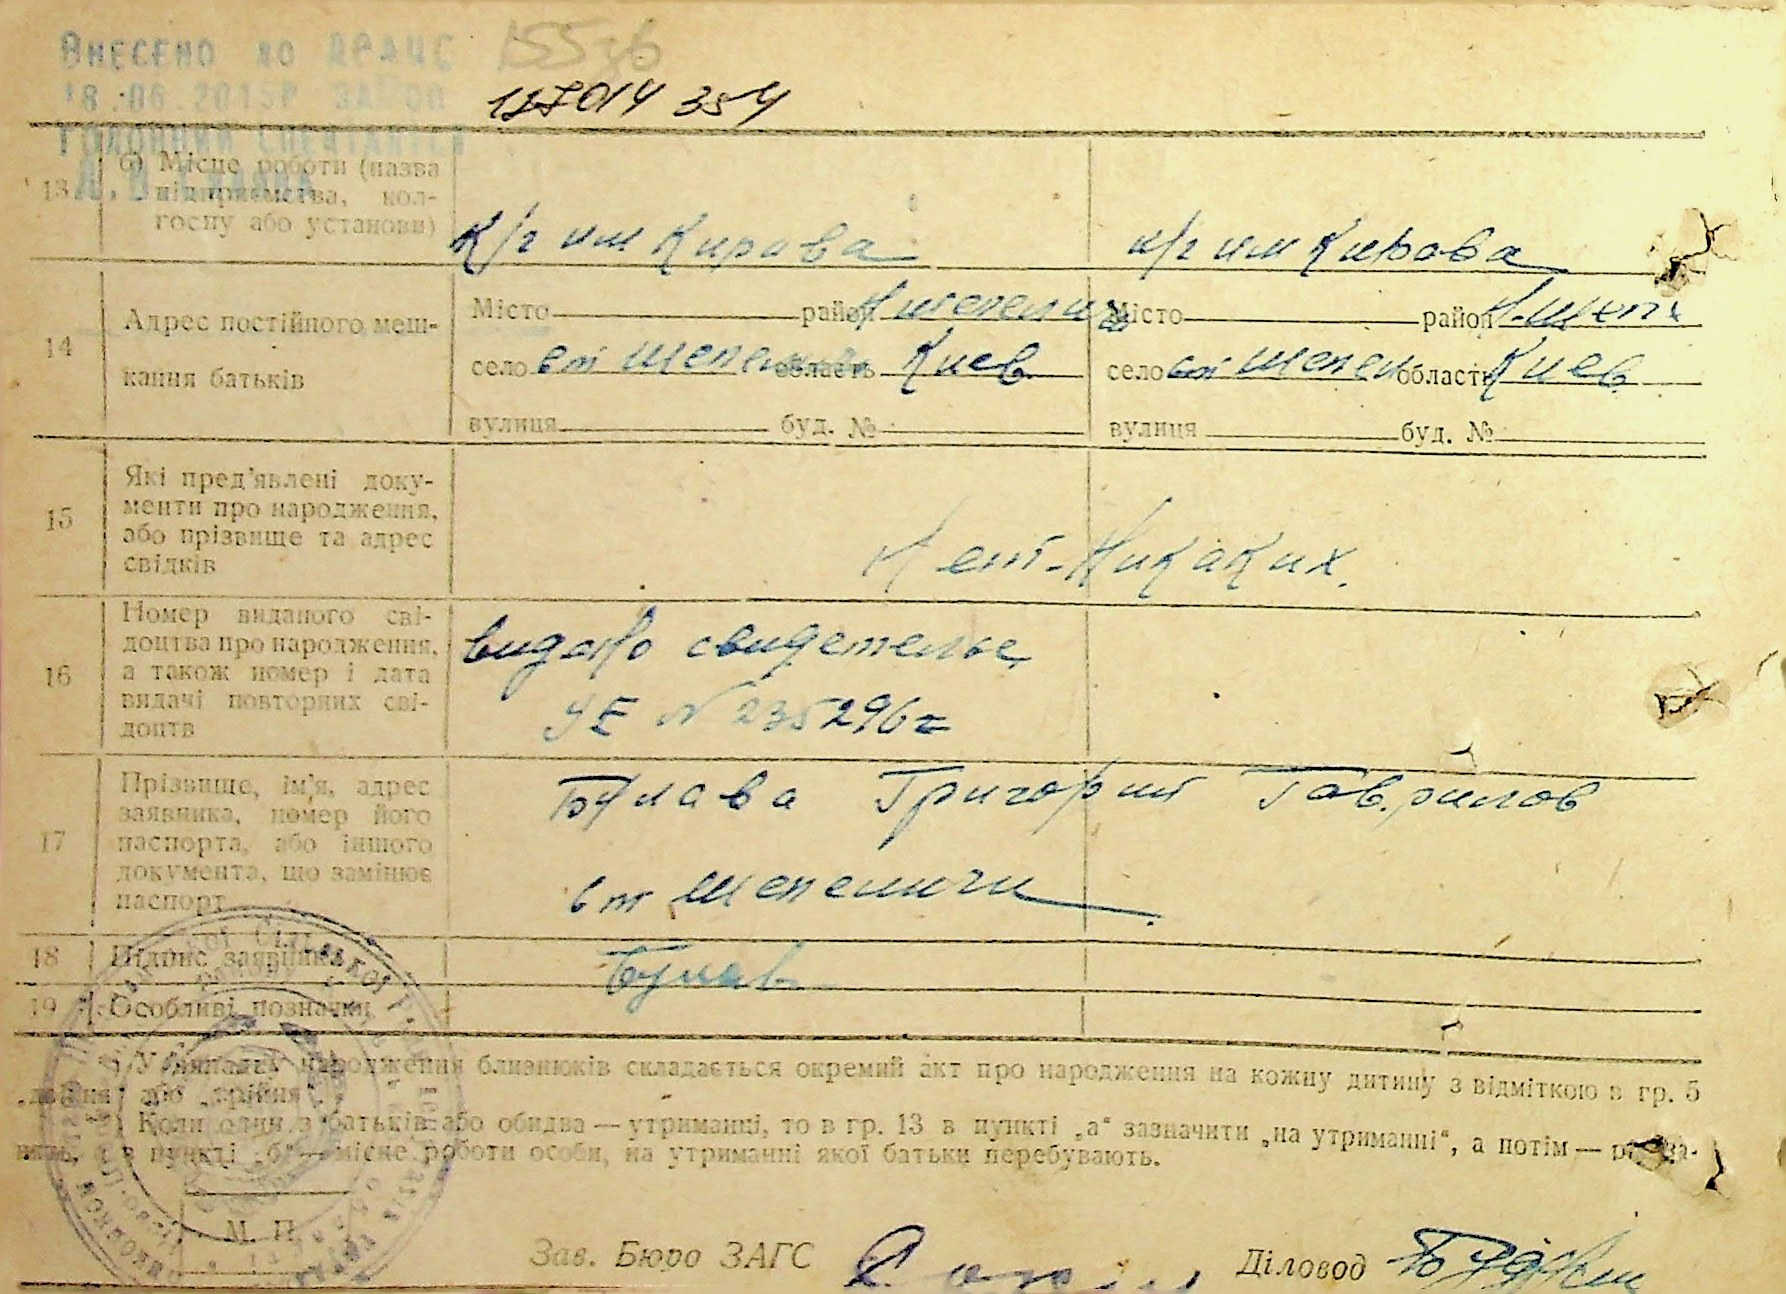 Внесено до ДРАЦС
18.06.2015р
155зб
127014 354
13
б) Місце роботи (назва
підприємства, кол-
госпу або установи)
к/г им Кирова
к/г им Кирова
14
Адрес постійного меш-
кання батьків
Місто район
село ст область Киев
вулиця буд. №
Місто район Н.Шеп
село ст Шепел область Киев
вулиця буд. №
15
Які пред'явлені доку-
менти про народження,
або прізвище та адрес
свідків
Нет-Никаких.
16
Номер виданого сві-
доцтва про народження,
а також номер і дата
видачі повторних сві-
доцтв
видано свидетельс
УЕ № 235296
17
Прізвище, ім'я, адрес
заявника, номер його
паспорта, або іншого
документа, що замінює
паспорт
Булава Григорий Гаврилов
ст Шепеличи
18
Підпис заявника
Булав
19
Особливі позначки
У випадку народження близнюків складається окремий акт про народження на кожну дитину з відміткою в гр. 5
„двійня" або „трійня".
Коли один з батьків або обидва — утриманці, то в гр. 13 в пункті „а" зазначити „на утриманні", а потім —
а в пункті „б" — місце роботи особи, на утриманні якої батьки перебувають.
М. П.
Зав. Бюро ЗАГС
Діловод